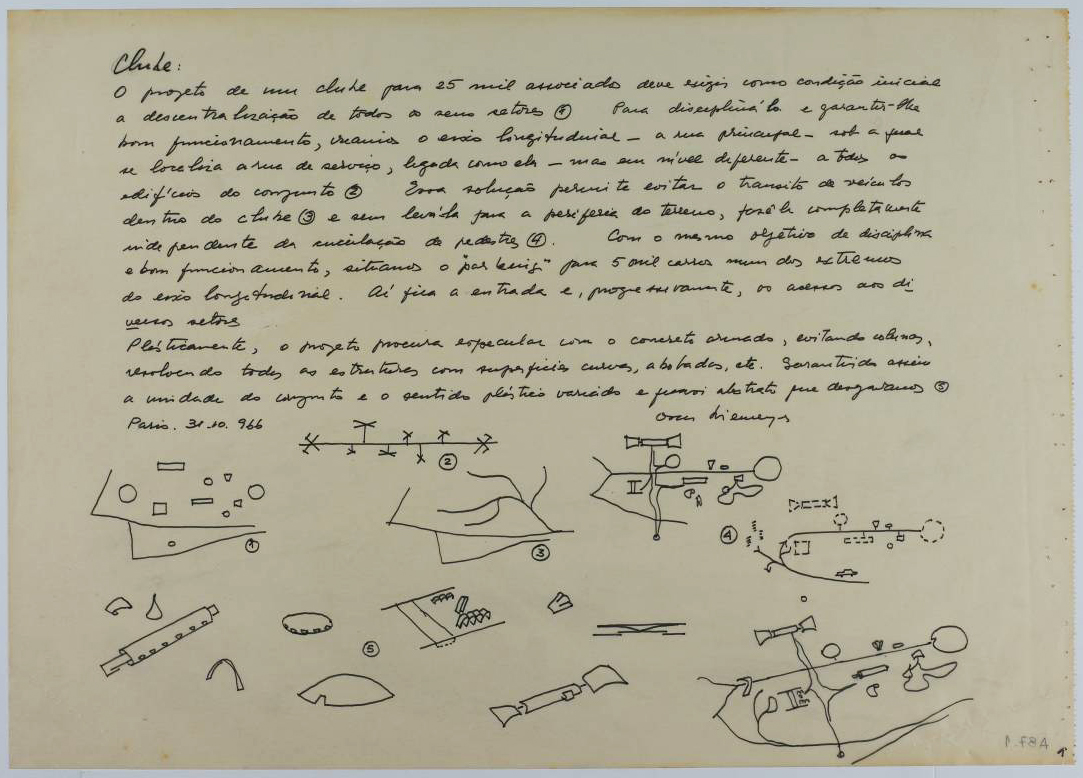 Clube:
O projeto de um clube para 25 mil associados deve exigir como condição inicial
a descentralização de todos os seus setores ① Para discipliná-la e garantir-lhe
bom funcionamento, criamos o eixo longitudinal – a rua principal – sob a qual
se localiza a rua de serviço, ligada como ela – mas em nível diferente – a todos os
edifícios do conjunto ② Essa solução permite evitar o transito de veículos
dentro do clube ③ e sem levá-la para a periferia do terreno, fazê-la completamente
independente da circulação de pedestres ④. Com o mesmo objetivo de disciplina
e bom funcionamento, situamos o "parking" para 5 mil carros num dos extremos
do eixo longitudinal. Aí fica a entrada e, progressivamente, os acessos aos di
versos setores
Plásticamente, o projeto procura especular com o concreto armado, evitando colunas,
resolvendo todas as estruturas com superfícies curvas, abobadas, etc. Garantindo assim
a unidade do conjunto e o sentido plástico variado e quasi abstrato que desejamos ⑤
Paris. 31.10.966 Oscar Niemeyer
②
①
③
④
⑤